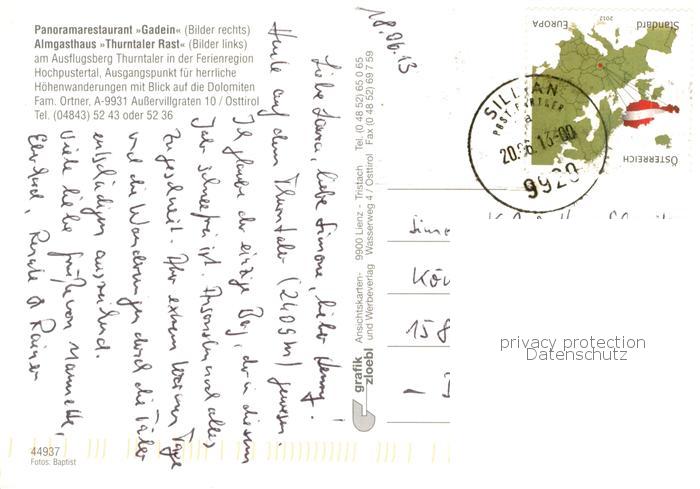 Panoramarestaurant »Gadein« (Bilder rechts)
Almgasthaus »Thurntaler Rast« (Bilder links)
am Ausflugsberg Thurntaler in der Ferienregion
Hochpustertal, Ausgangspunkt für herrliche
Höhenwanderungen mit Blick auf die Dolomiten
Fam. Ortner, A-9931 Außervillgraten 10 / Osttirol
Tel. (04843) 52 43 oder 52 36
18.06.13
Liebe Laura, liebe Simone, lieber Henny!
Heute auf dem Thurntaler (2409 m) gewesen.
Ich glaube der einzige Berg, der in diesem
Jahr schneefrei ist. Ansonsten und alles
zugeschneit. Aber extrem warme Tage
und die Wanderungen durch die Täler
entschädigen ausreichend.
Viele liebe Grüße von Nannette,
Renate & Rainer
grafik zloebl
Ansichtskarten- und Werbeverlag
9900 Lienz - Tristach
Wasserweg 4 / Osttirol
Tel. (0 48 52) 65 0 65
Fax (0 48 52) 69 7 59
EUROPA
2012
Standard
ÖSTERREICH
SILLIAN
POST PARTNER
a
20.06.13-00
9920
Sim
Kö
158
privacy protection
Datenschutz
44937
Fotos: Baptist